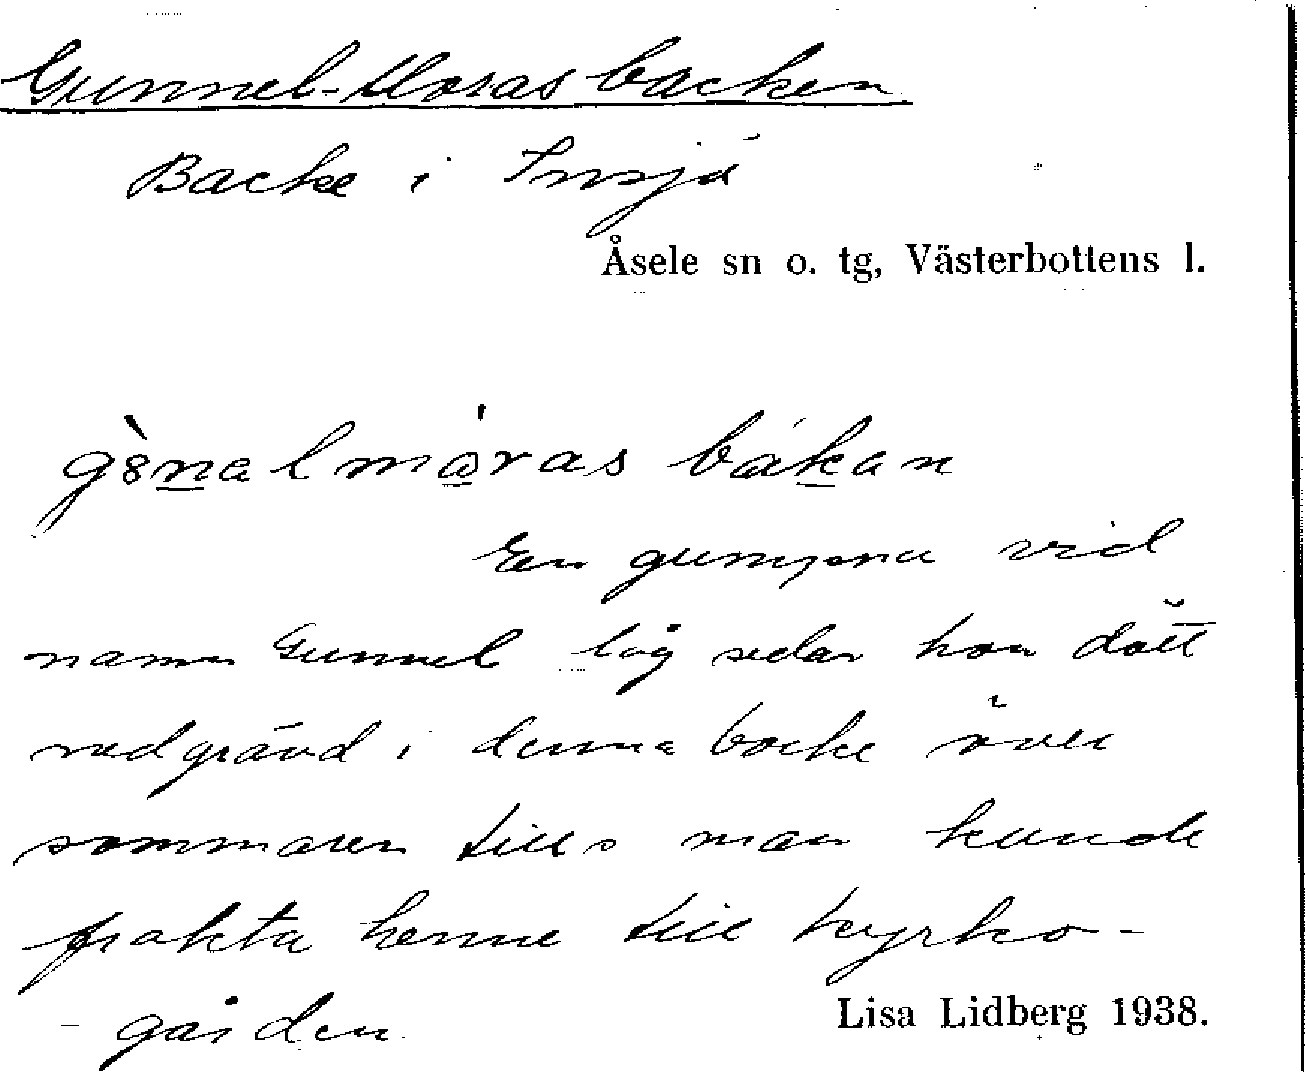 Gunnel-Moras backen
Backe i Insjö
Åsele sn o. tg, Västerbottens l.
gònalmóras bákan
En gumma vid
namn Gunnel låg sedan hon dött
nedgrävd i denna backe över
sommaren tills man kunde
frakta henne till kyrko-
- gården
Lisa Lidberg 1938.